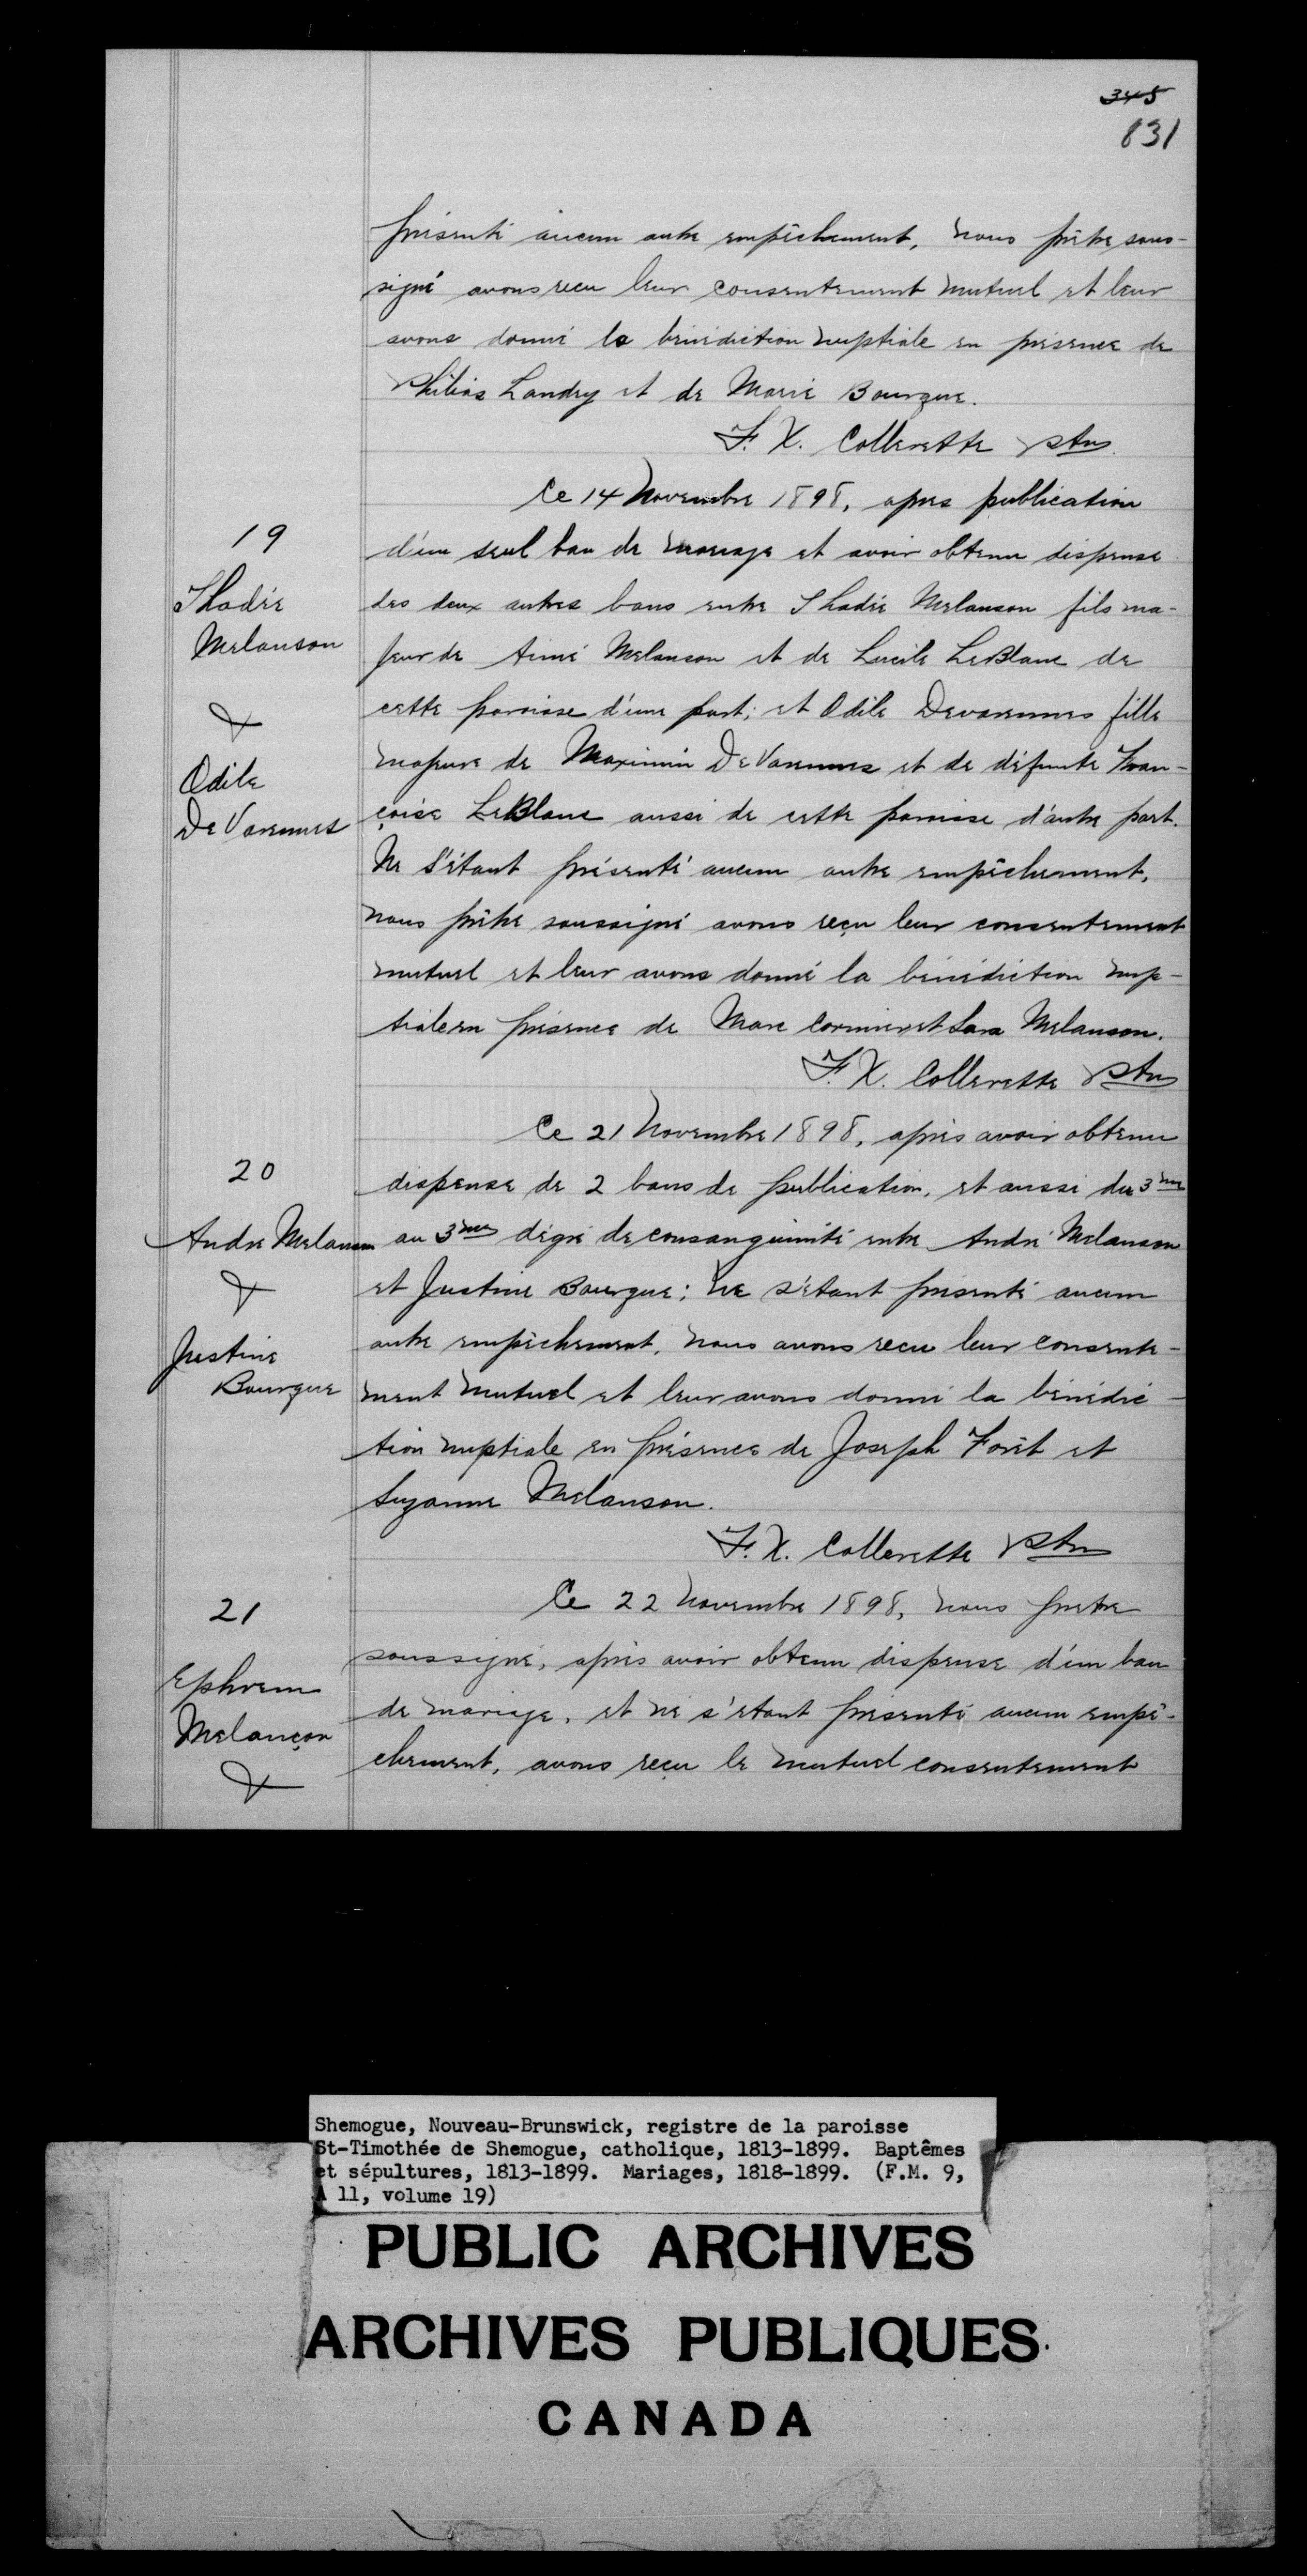 345
831
présenté aucun autre empêchement, nous prêtre sous-
signé avons reçu leur consentement mutuel et leur
avons donné la bénédiction nuptiale en présence de
Philias Landry et de Marie Bourque.
F. X. Collerette Ptre
19
Thadée
Melanson
&
Odile
De Varennes
Ce 14 Novembre 1898, apres publication
d'un seul ban de mariage et avoir obtenu dispense
des deux autres bans entre Thadée Melanson fils ma-
jeur de Aimé Melanson et de Lucile LeBlanc de
cette paroisse d'une part; et Odile Devarennes fille
majeure de Maximin De Varennes et de défunte Fran-
çoise LeBlanc aussi de cette paroisse d'autre part.
Ne s'étant présenté aucun autre empêchement,
nous prêtre soussigné avons reçu leur consentement
mutuel et leur avons donné la bénédiction nup-
tiale en présence de Marc Cormier et Sara Melanson.
F. X. Collerette Ptre
20
André Melanson
&
Justine
Bourque
Ce 21 Novembre 1898, après avoir obtenu
dispense de 2 bans de publication, et aussi du 3me
au 3me dégré de consanguinité entre André Melanson
et Justine Bourque; ne s'étant présenté aucun
autre empêchement, nous avons reçu leur consente-
ment mutuel et leur avons donné la bénédic-
tion nuptiale en présence de Joseph Forêt et
Suzanne Melanson.
F. X. Collerette Ptre
21
Ephrem
Melançon
&
Ce 22 Novembre 1898, nous prêtre
soussigné, après avoir obtenu dispense d'un ban
de mariage, et ne s'étant présenté aucun empê-
chement, avons reçu le mutuel consentement
Shemogue, Nouveau-Brunswick, registre de la paroisse
St-Timothée de Shemogue, catholique, 1813-1899. Baptêmes
et sépultures, 1813-1899. Mariages, 1818-1899. (F.M. 9,
A 11, volume 19)
PUBLIC ARCHIVES
ARCHIVES PUBLIQUES
CANADA